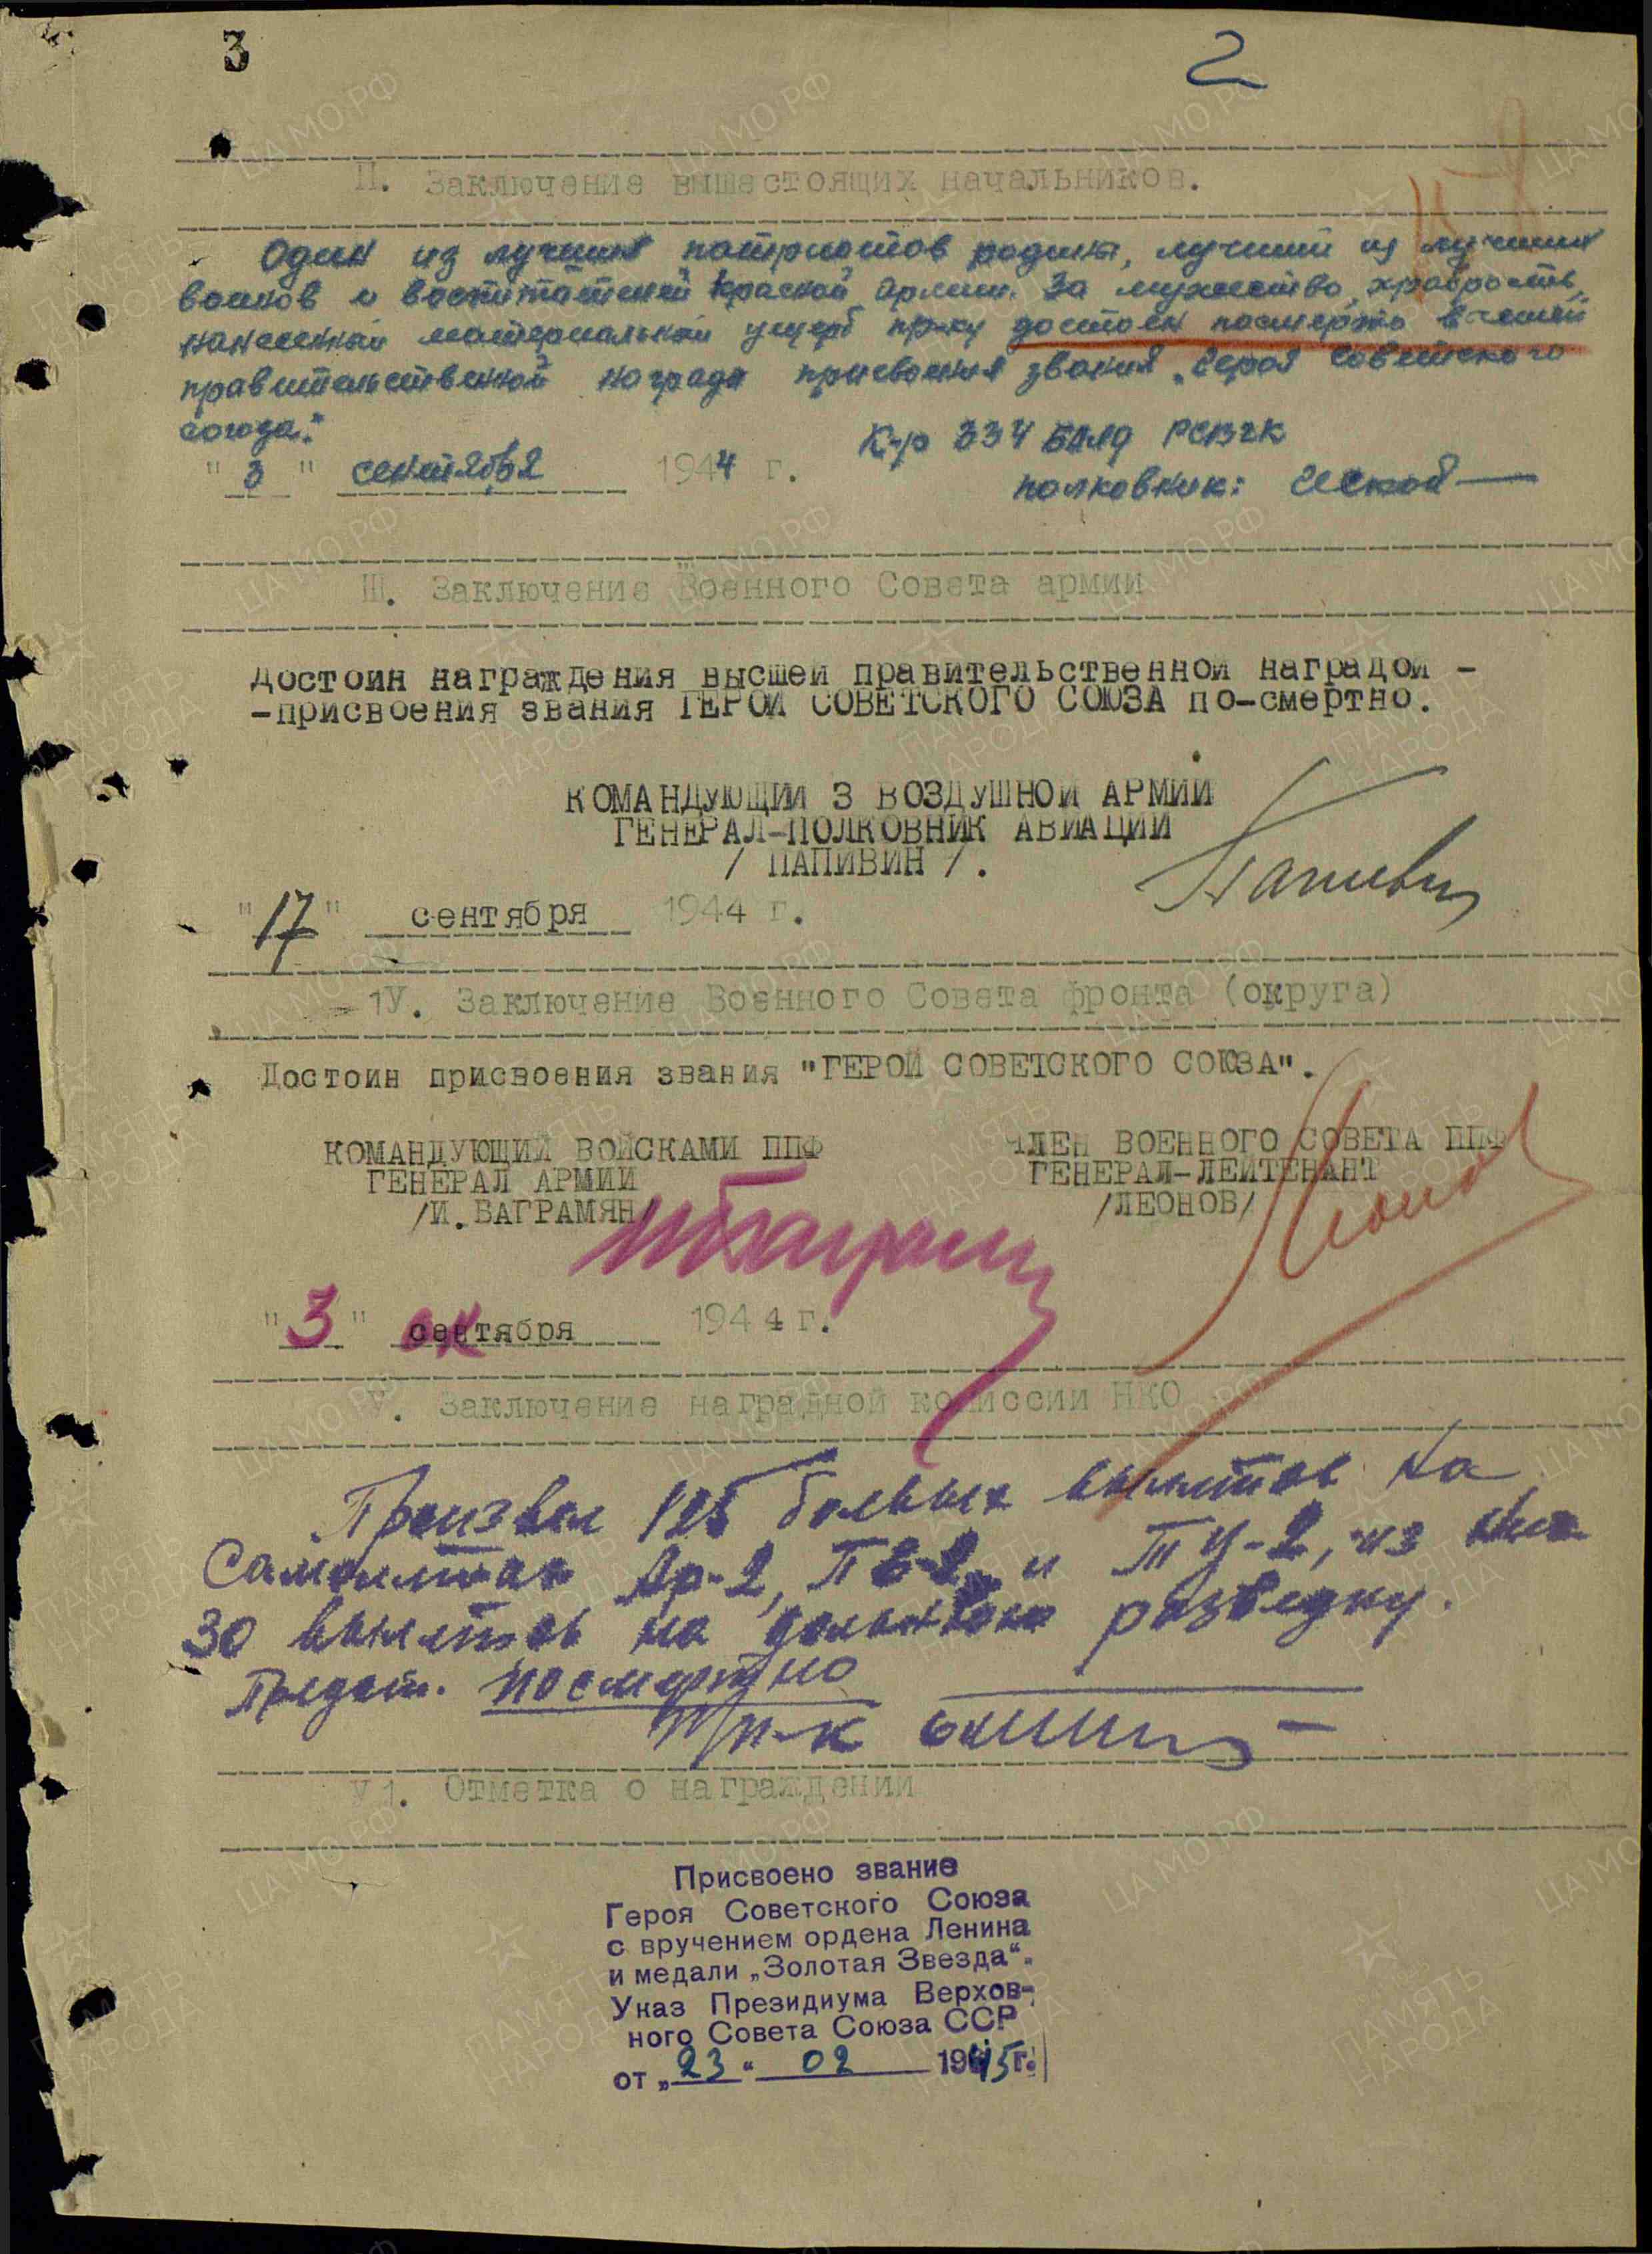 3
2
II. Заключение вышестоящих начальников.
Один из лучших патриотов родины, лучший из лучших
воинов и воспитателей красной армии. За мужество, храбрость,
нанесенный материальный ущерб пр-ку достоен посмертно высшей
правительственной награде присвоения звания „Героя Советского
союза."
К-р 334 БАЛД РСВГК
"3" сентября 1944 г.
полковник:
III. Заключение Военного Совета армии
Достоин награждения высшей правительственной наградой -
-присвоения звания ГЕРОЙ СОВЕТСКОГО СОЮЗА по-смертно.
КОМАНДУЮЩИЙ 3 ВОЗДУШНОЙ АРМИИ
ГЕНЕРАЛ-ПОЛКОВНИК АВИАЦИИ
/ ПАПИВИН /.
Папивин
"17" сентября 1944 г.
1У. Заключение Военного Совета фронта (округа)
Достоин присвоения звания "ГЕРОЙ СОВЕТСКОГО СОЮЗА".
КОМАНДУЮЩИЙ ВОЙСКАМИ ППФ
ГЕНЕРАЛ АРМИИ
/И. БАГРАМЯН/
ИБаграмян
ЧЛЕН ВОЕННОГО СОВЕТА ППФ
ГЕНЕРАЛ-ЛЕЙТЕНАНТ
/ЛЕОНОВ/
Леонов
"3" ок сентября 1944 г.
У. Заключение наградной комиссии НКО
Произвел 125 боевых вылетов на
Самолетах Ар-2, ПЕ-2 и ТУ-2, из них
30 вылетов на дальнюю разведку.
Предст. посмертно
П/п-к
У1. Отметка о награждении
Присвоено звание
Героя Советского Союза
с вручением ордена Ленина
и медали „Золотая Звезда“.
Указ Президиума Верхов-
ного Совета Союза ССР
от „23“ 02 1945 г.